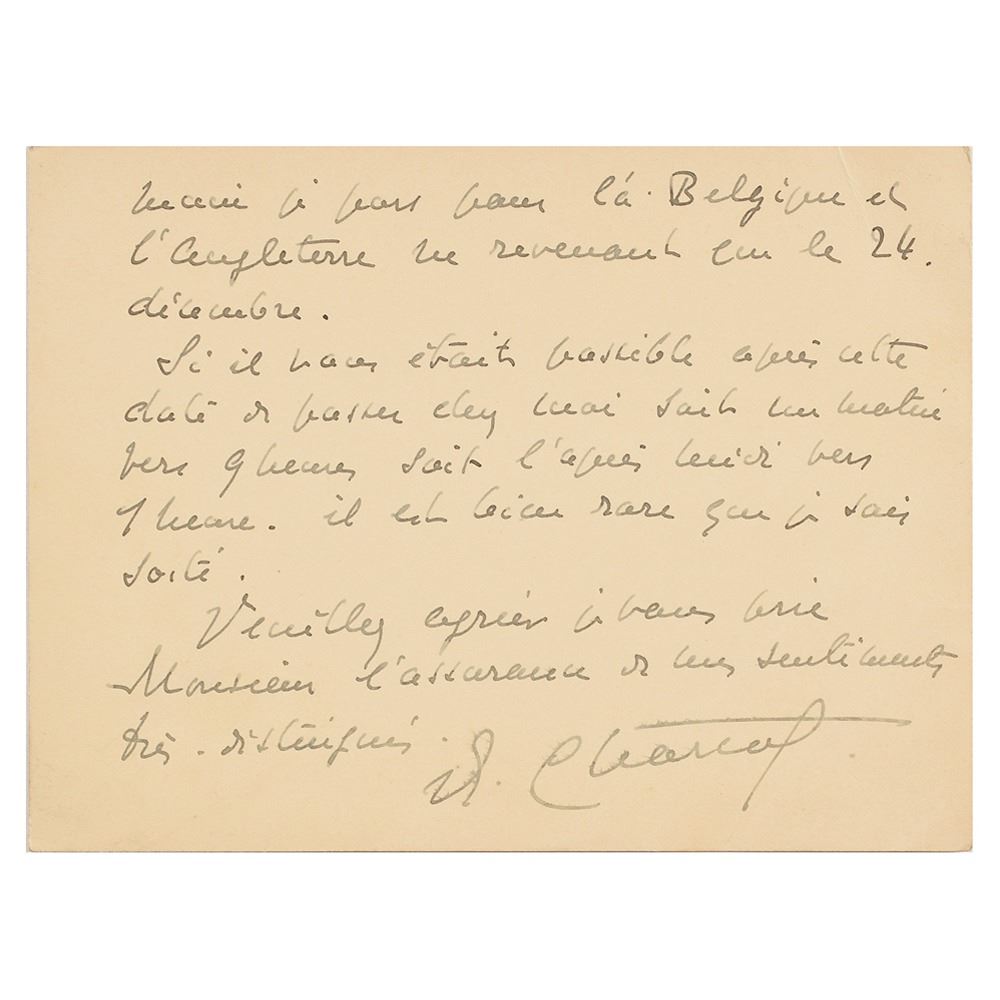 main je pars pour la Belgique et
l'Angleterre ne revenant que le 24.
décembre.
Si il vous était possible après cette
date de passer chez moi soit un matin
vers 9 heures soit l'après midi vers
1 heure. il est bien rare que je sois
sorti.
Veuillez agréer je vous prie
Monsieur l'assurance de mes sentiments
très-distingués.
Charcot